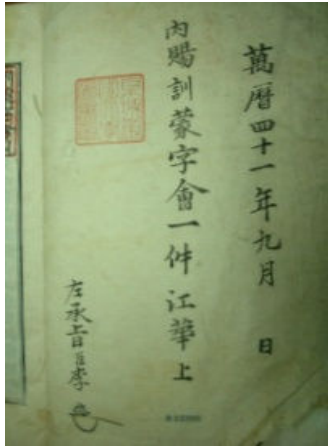 萬曆四十一年九月 日
內賜訓蒙字會一件江華上
左承旨臣李